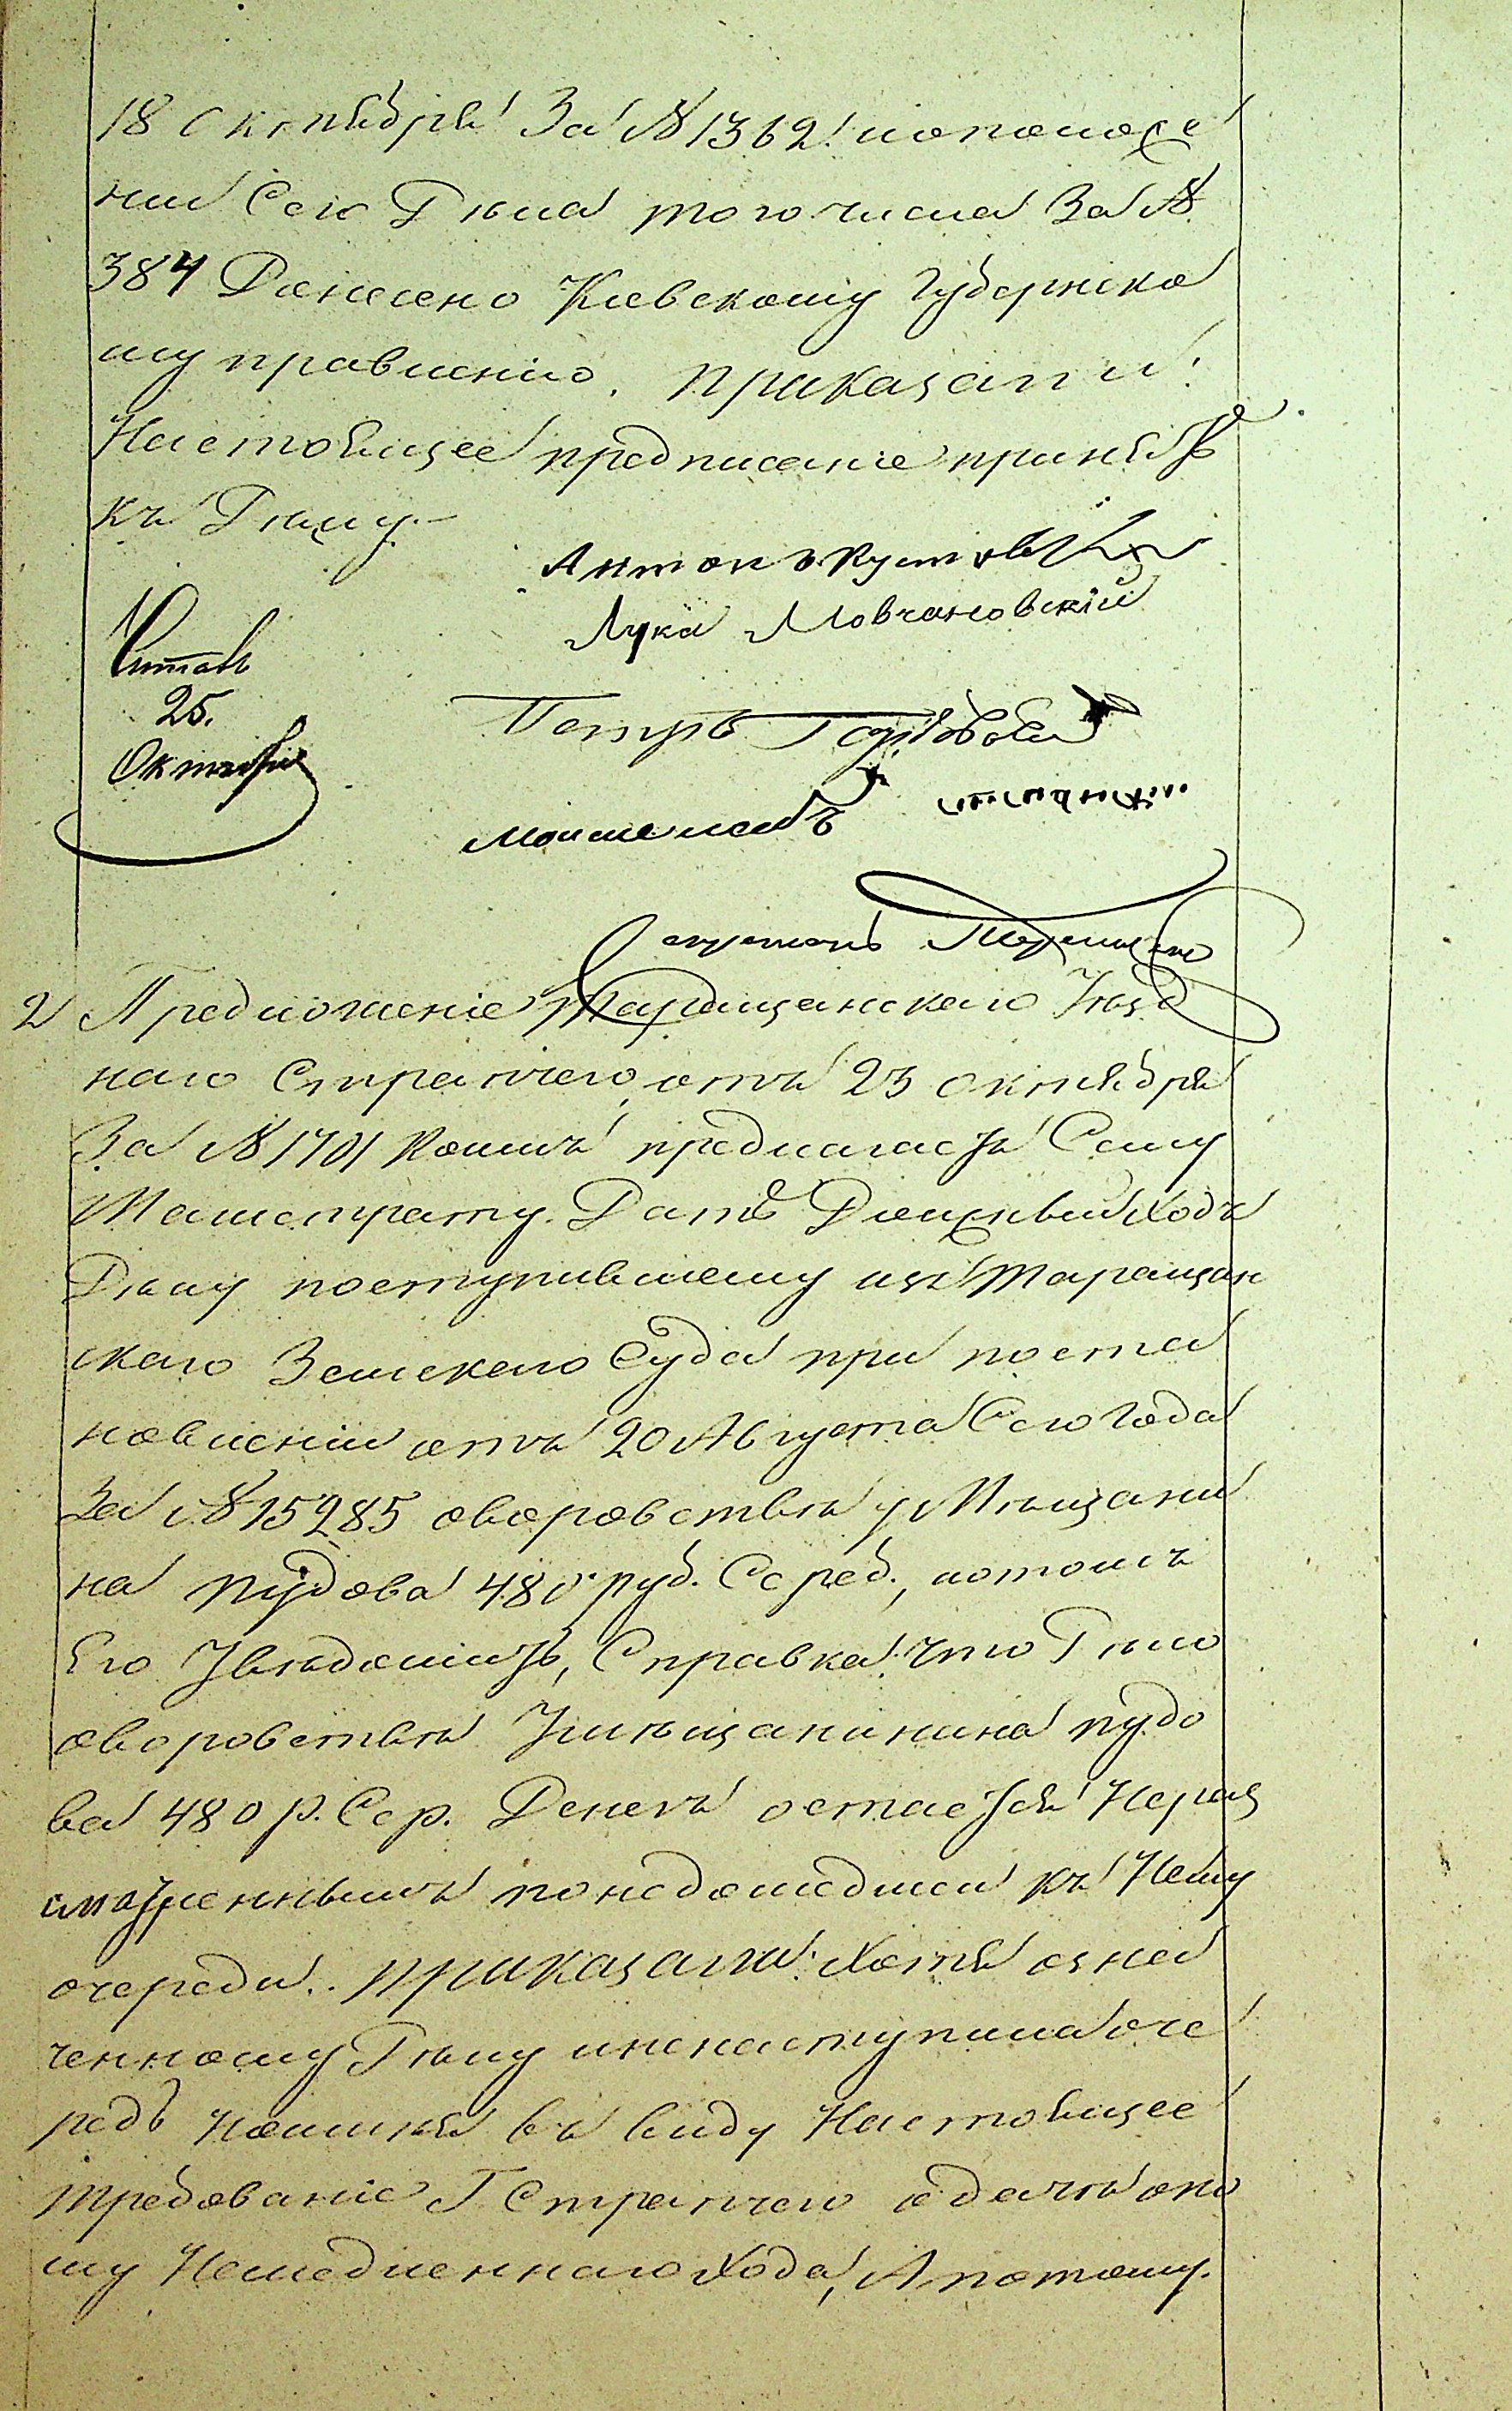 18 Октября За № 1362. и о положе
нии Сего Дѣла того числа За №
384 Донесено Киевскому Губернско
му правлению. приказали:
Настоящее предписание принять
къ Дѣлу.
Антонъ
Лука Мовчановский
Читалъ
25.
Октября
Петръ
Секретарь
2 Предложение Таращанского Уѣзд
наго Стряпчего, отъ 23 октября
За № 1701 коимъ предлагаетъ Сему
Магистрату. Дать Должный Ходъ
Дѣлу поступившему изъ Таращан
ского Земского Суда при поста
новлении отъ 20 Августа Сего Года
За № 15285 о воровствѣ у Мѣщани
на Пудова 480 руб. Сереб., и о томъ
Его Увѣдомить, Справка: что Дѣло
о воровствѣ У мѣщанинина Пудо
ва 480 р. Сер. Денегъ остается Нераз
смотреннымъ по недошедшей къ Нему
очереди. приказали: Хотя озна
ченному Дѣлу и не наступила оче
редь но имѣя въ виду Настоящее
требование Г Стряпчего о дачѣ оно
му Немедленного Хода, А потому.